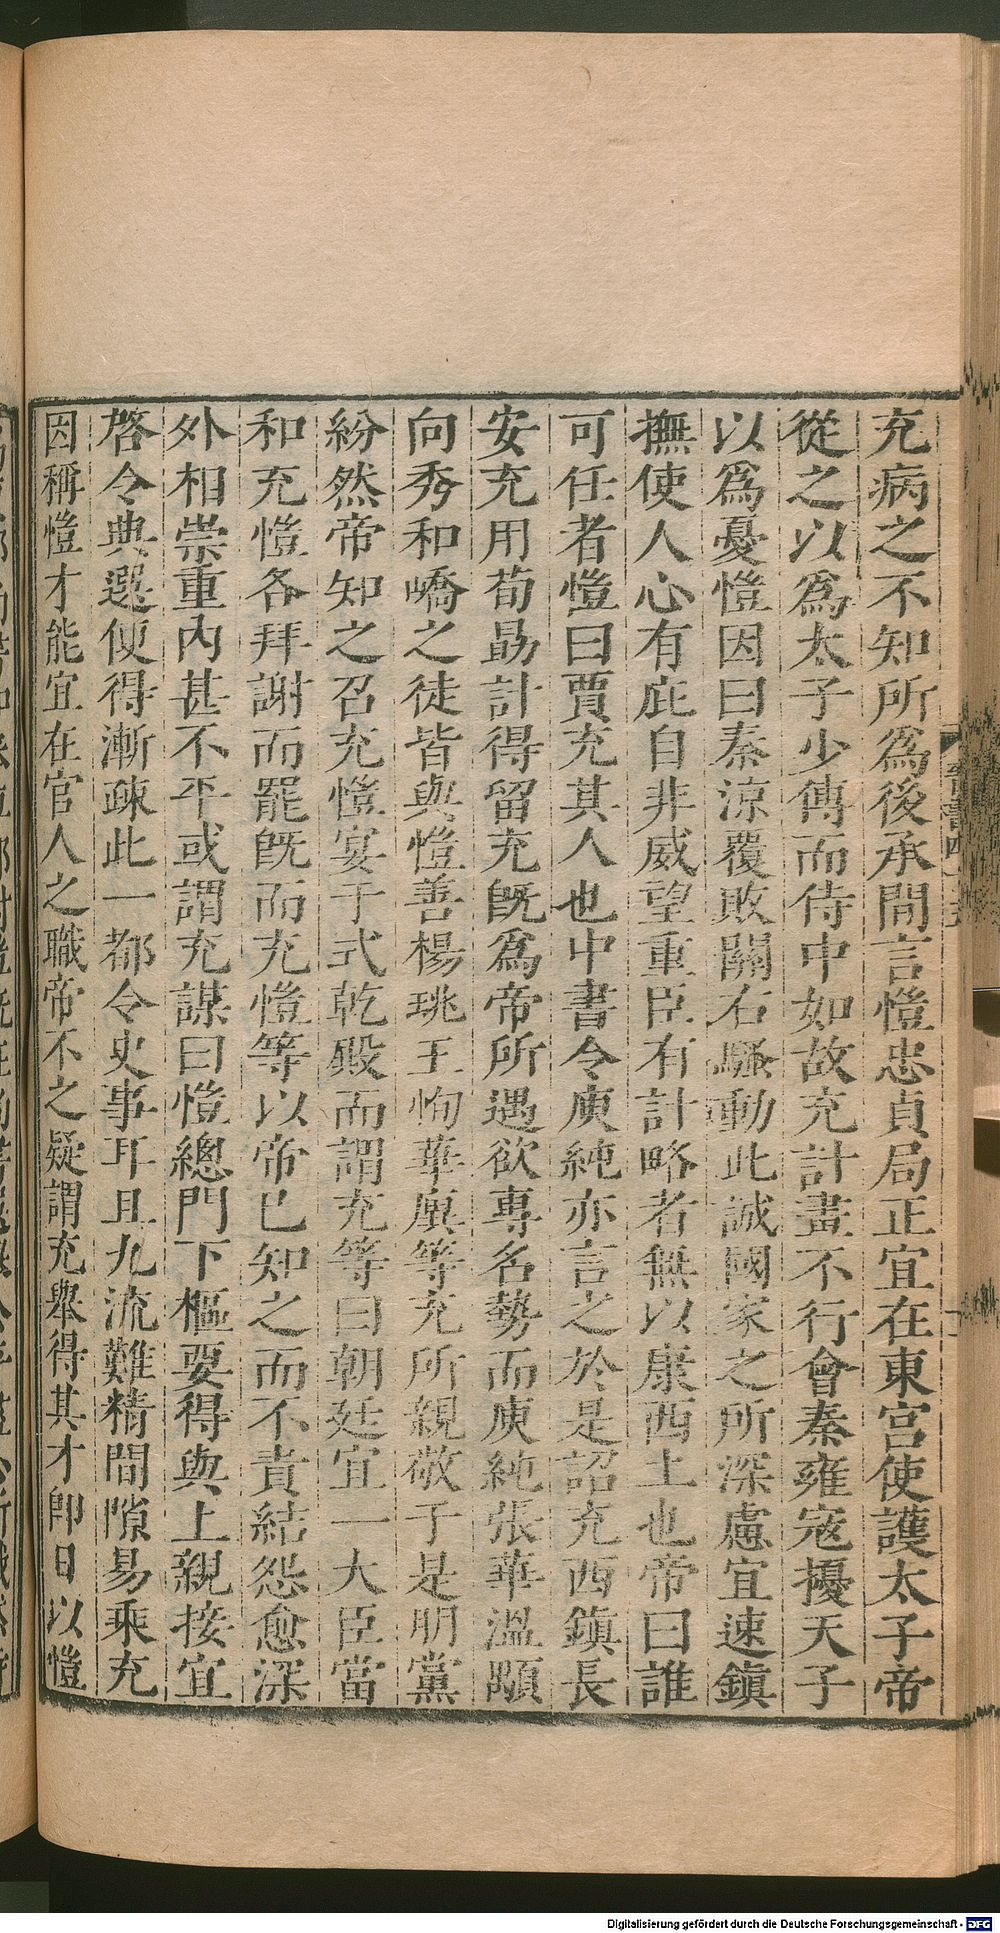 充病之不知所爲後承間言愷忠貞局正宜在東宮使護太子帝
從之以爲太子少傅而侍中如故充計畫不行會秦雍寇擾天子
以爲憂愷因曰秦涼覆敗關右騷動此誠國家之所深慮宜速鎮
撫使人心有庇自非威望重臣有計略者無以康西土也帝曰誰
可任者愷曰賈充其人也中書令庾純亦言之於是詔充西鎮長
安充用荀勗計得留充旣爲帝所遇欲專名勢而庾純張華溫顒
向秀和嶠之徒皆與愷善楊珧王恂華廙等充所親敬于是朋黨
紛然帝知之召充愷宴于式乾殿而謂充等曰朝廷宜一大臣當
和充愷各拜謝而罷旣而充愷等以帝已知之而不責結怨愈深
外相崇重內甚不平或謂充謀曰愷總門下樞要得與上親接宜
啓令典選便得漸疎此一都令史事耳且九流難精間隙易乘充
因稱愷才能宜在官人之職帝不之疑謂充舉得其才卽日以愷
Digitalisierung gefördert durch die Deutsche Forschungsgemeinschaft - DFG